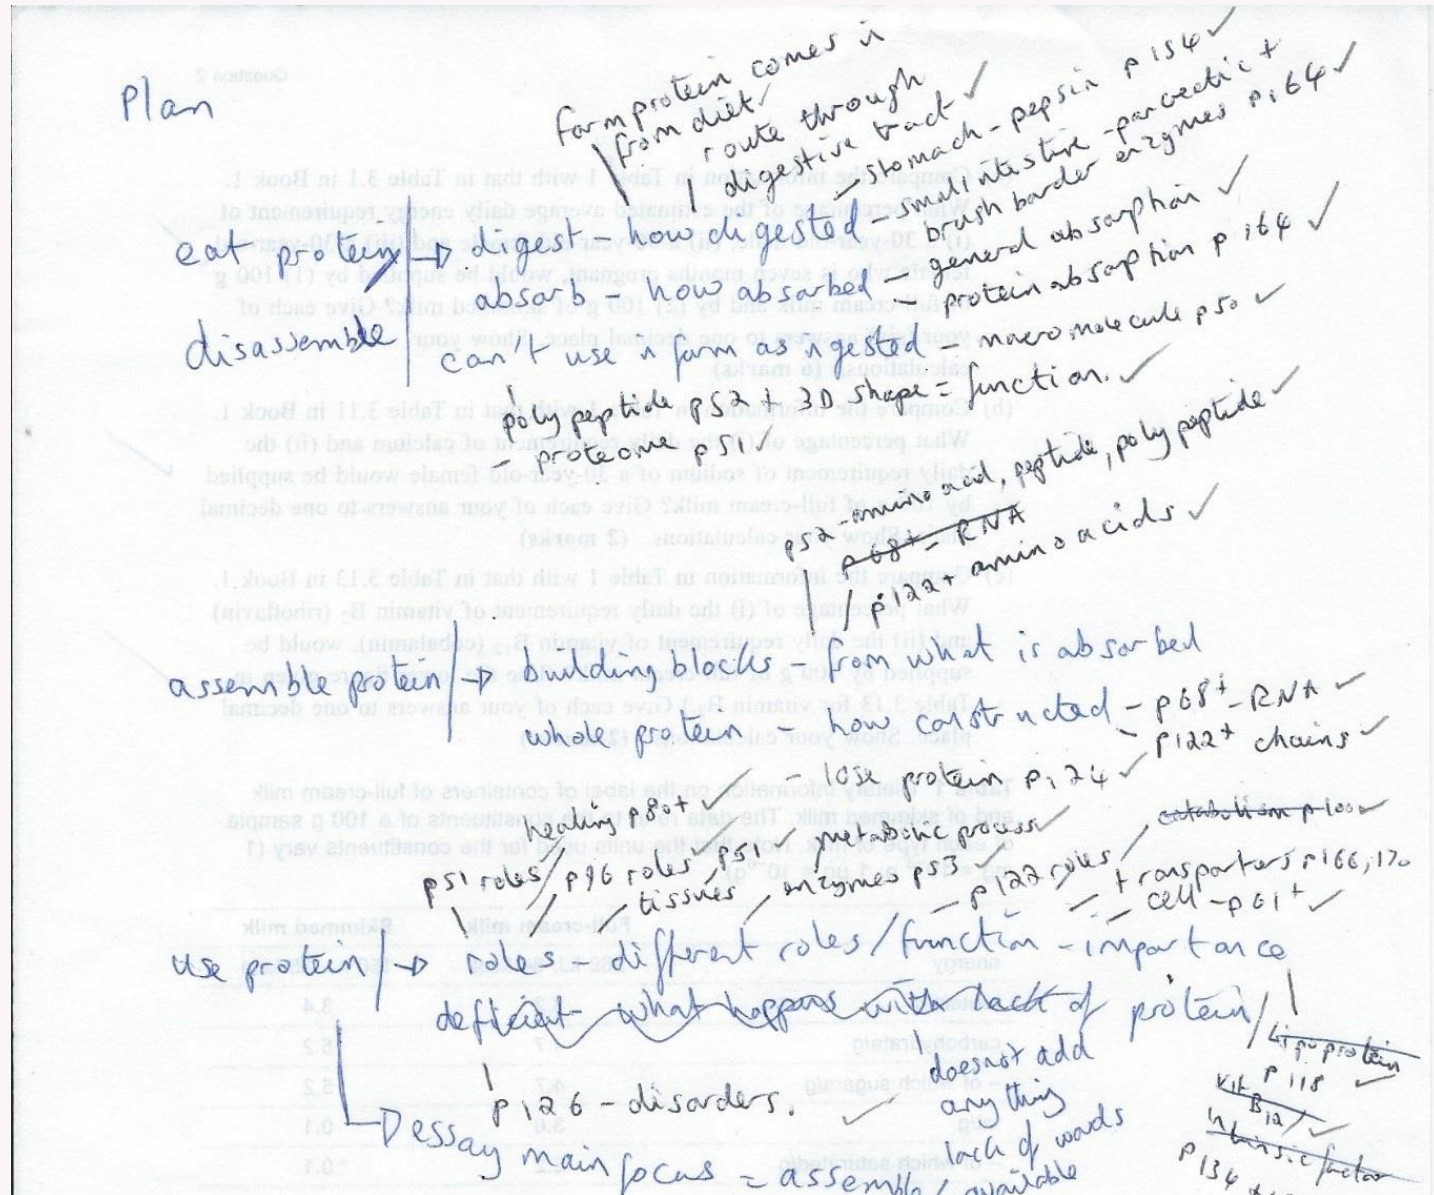 Plan
form protein comes in
from diet ✓
route through
digestive tract ✓
stomach - pepsin p154 ✓
small intestine - pancreatic +
brush border enzymes p164 ✓
eat protein → digest - how digested
general absorption ✓
absorb - how absorbed
protein absorption p164 ✓
disassemble
can't use in form as ingested - macromolecule p50 ✓
polypeptide p52 + 3D shape = function. ✓
- proteome p51 ✓
p52 - amino acid, peptide, polypeptide ✓
p68+ - RNA
p122 + amino acids ✓
assemble protein → building blocks - from what is absorbed
whole protein - how constructed - p68+ - RNA ✓
- p122+ chains ✓
- lose protein p124 ✓
healing p80+ ✓
metabolic process ✓
catabolism p100 ✓
p51 roles ✓ p96 roles ✓ p51 ✓
tissues enzymes p53 ✓ - p122 roles ✓ - transporters p166, 170
- cell - p61+ ✓
use protein → roles - different roles/function - importance
deficient - what happens with lack of protein
Lipoprotein
p118 ✓
Vit B12 ✓
intrinsic factor
p134
doesn't add
anything
lack of words
available
p126 - disorders. ✓
essay main focus = assemble/